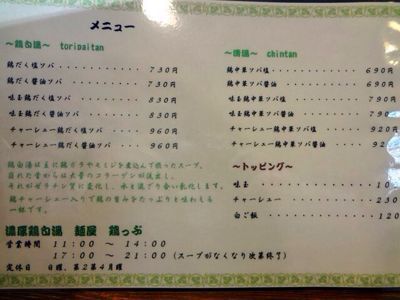 メニュー
～鶏白湯～ toripaitan
鶏だく塩ソバ ・・・・・・・・・・ 730円
鶏だく醤油ソバ ・・・・・・・・・ 730円
味玉鶏だく塩ソバ ・・・・・・・・ 830円
味玉鶏だく醤油ソバ ・・・・・・・ 830円
チャーシュー鶏だく塩ソバ ・・・・ 960円
チャーシュー鶏だく醤油ソバ ・・・ 960円
鶏白湯は主に鶏ガラやモミジを煮込んで作ったスープ。
白れた骨からは大量のコラーゲンが流出し、
それがゼラチン質に変化し、水と混ざり合い乳化します。
鶏チャーシュー入りで鶏の旨みをたっぷりと味わえる
一杯です。
濃厚鶏白湯 麺屋 鶏っぷ
営業時間 11:00 ～ 14:00
17:00 ～ 21:00 (スープがなくなり次第終了)
定休日 日曜、第2第4月曜
～清湯～ chintan
鶏中華ソバ塩 ・・・・・・・・・・ 690円
鶏中華ソバ醤油 ・・・・・・・・・ 690円
味玉鶏中華ソバ塩 ・・・・・・・・ 790
味玉鶏中華ソバ醤油 ・・・・・・・ 790
チャーシュー鶏中華ソバ塩 ・・・・ 920
チャーシュー鶏中華ソバ醤油 ・・・ 92
～トッピング～
味玉 ・・・・・・・・・・ 10
チャーシュー ・・・・・・ 230
白ご飯 ・・・・・・・・・ 12